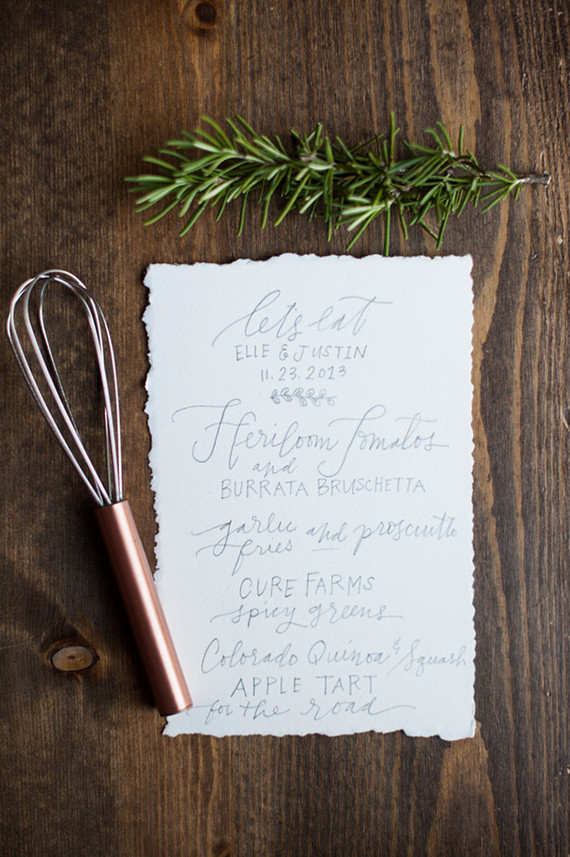 let's eat
ELLE & JUSTIN
11.23.2013
Heirloom Tomatos
and
BURRATA BRUSCHETTA
garlic and prosciutto
fries
CURE FARMS
spicy greens
Colorado Quinoa & Squash
APPLE TART
for the road